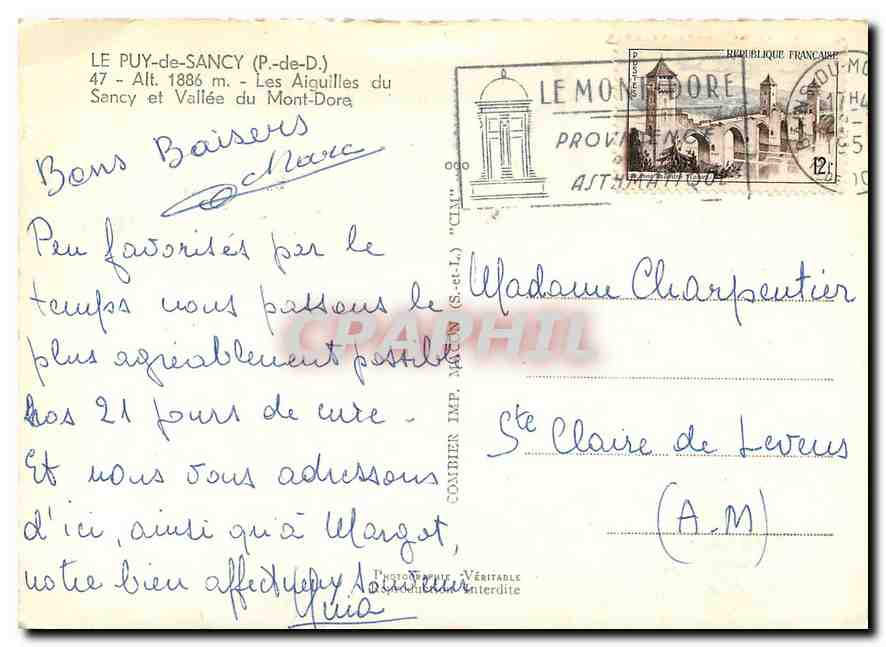 LE PUY-de-SANCY (P.-de-D.)
47 - Alt. 1886 m. - Les Aiguilles du
Sancy et Vallée du Mont-Dore
Bons Baisers
Marc
Peu favorisés par le
temps nous passons le
plus agréablement possible
nos 21 jours de cure.
Et nous vous adressons
d'ici, ainsi qu'à Margot,
notre bien affectueux souvenir
COMBIER IMP. MACON (S.-et-L.) "CIM"
PHOTOGRAPHIE VÉRITABLE
Reproduction Interdite
CPAPHIL
LE MONT-DORE
PROVIDENCE
ASTHMATIQUE
REPUBLIQUE FRANÇAISE
POSTES
12F
Madame Charpentier
Ste Claire de Levens
(A-M)